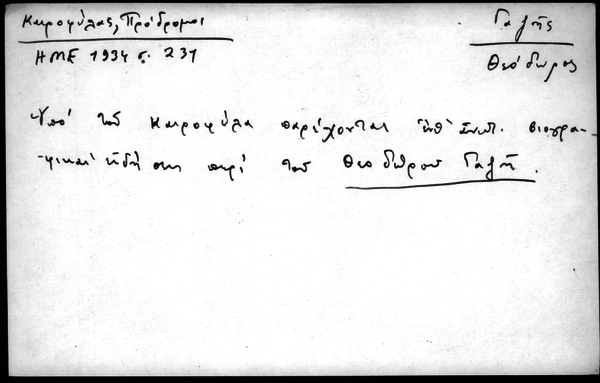 Καιροφύλας, Πρόδρομοι
ΗΜΕ 1934 σ. 231
Γαζῆς
Θεόδωρος
Ὑπό τοῦ Καιροφύλα παρέχονται βιογρα-
φικαί εἰδήσεις περί τοῦ Θεοδώρου Γαζῆ.